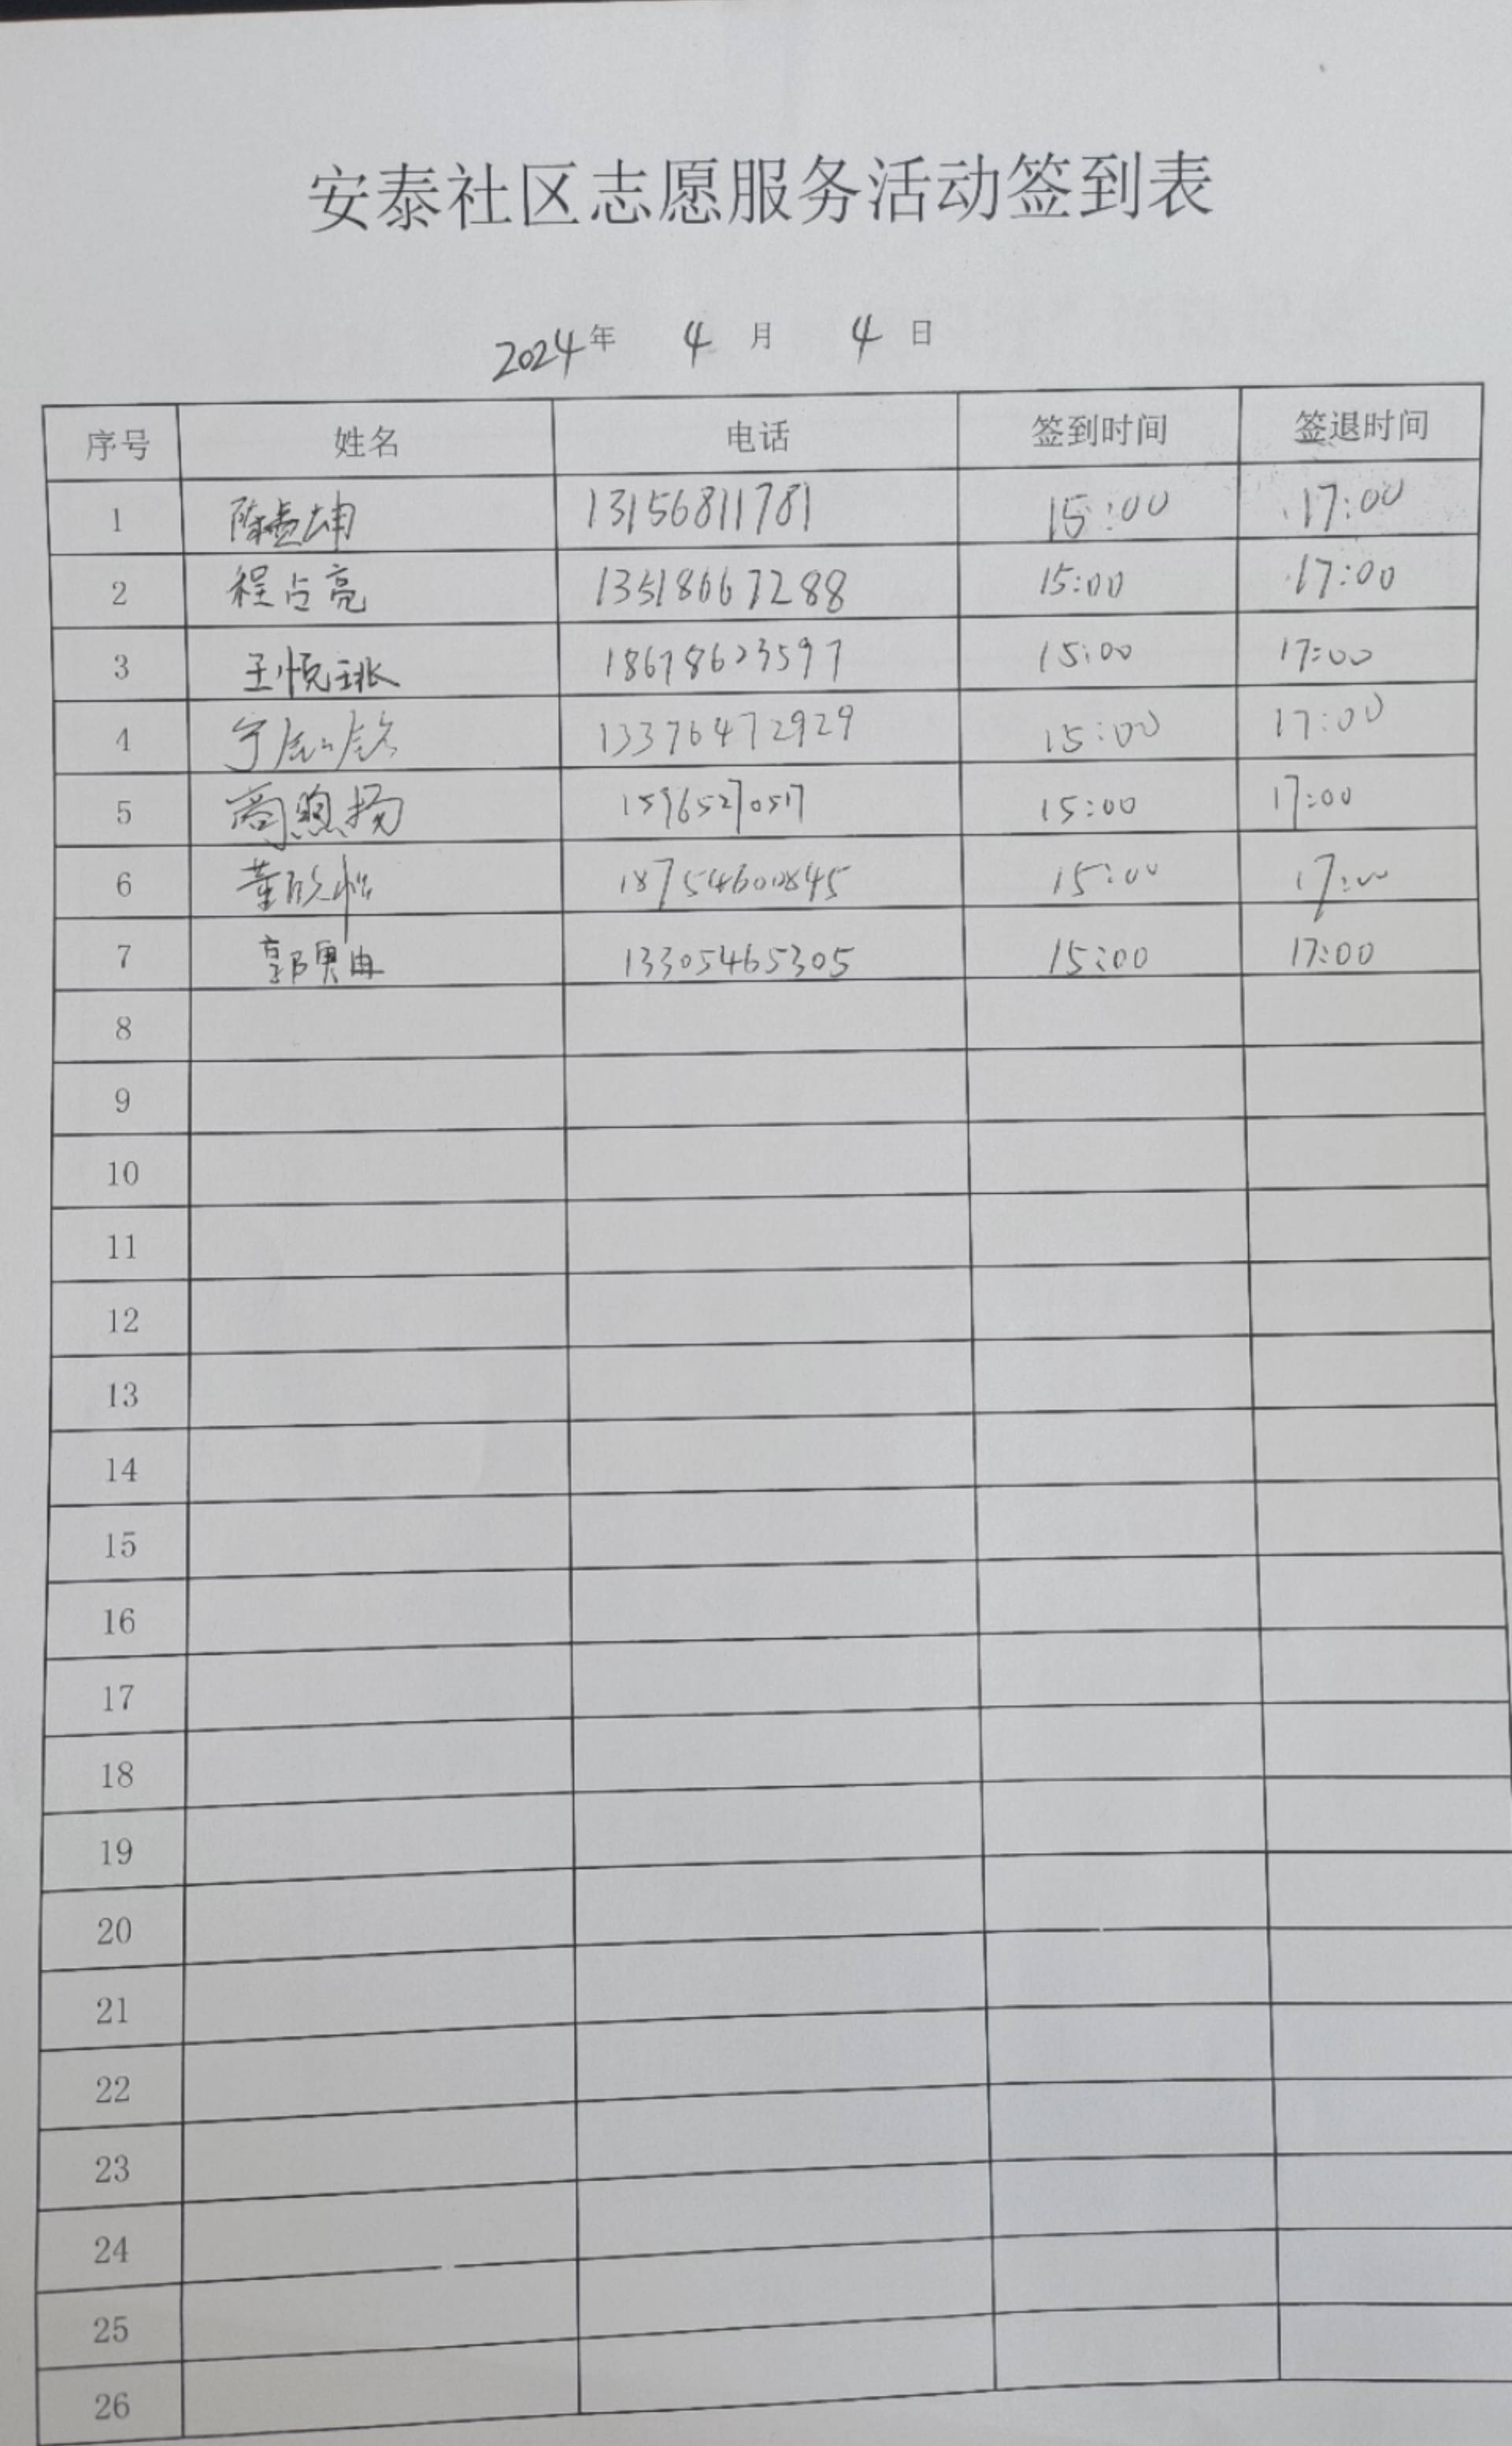 安泰社区志愿服务活动签到表
2024年 4 月 4 日
序号 姓名 电话 签到时间 签退时间
1 13156811781 15:00 17:00
2 程占亮 13518667288 15:00 17:00
3 王悦 18678623597 15:00 17:00
4 宁 13376472929 15:00 17:00
5 商煦扬 15965270517 15:00 17:00
6 董欣怡 18754600845 15:00 17:00
7 郭奥冉 13305465305 15:00 17:00
8
9
10
11
12
13
14
15
16
17
18
19
20
21
22
23
24
25
26